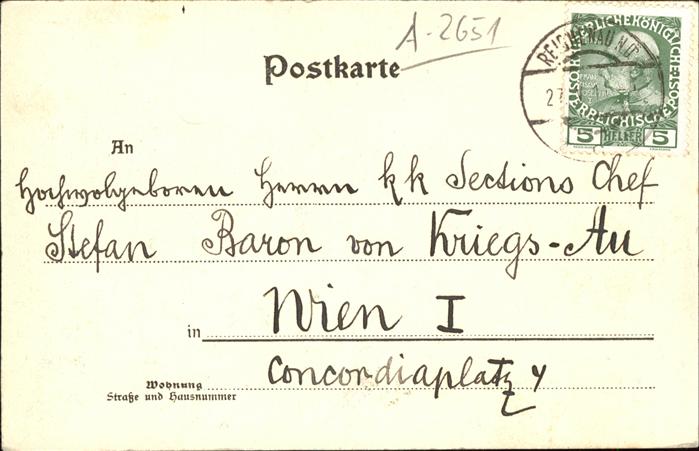 A-2651
Postkarte
REICHENAU N.Ö.
27
KAISERLICHE KÖNIGLICHE
ÖSTERREICHISCHE POST
5 HELLER 5
An
Hochwolgeboren Herrn kk Sections Chef
Stefan Baron von Kriegs-Au
in Wien I
Wohnung Concordiaplatz 4
Straße und Hausnummer